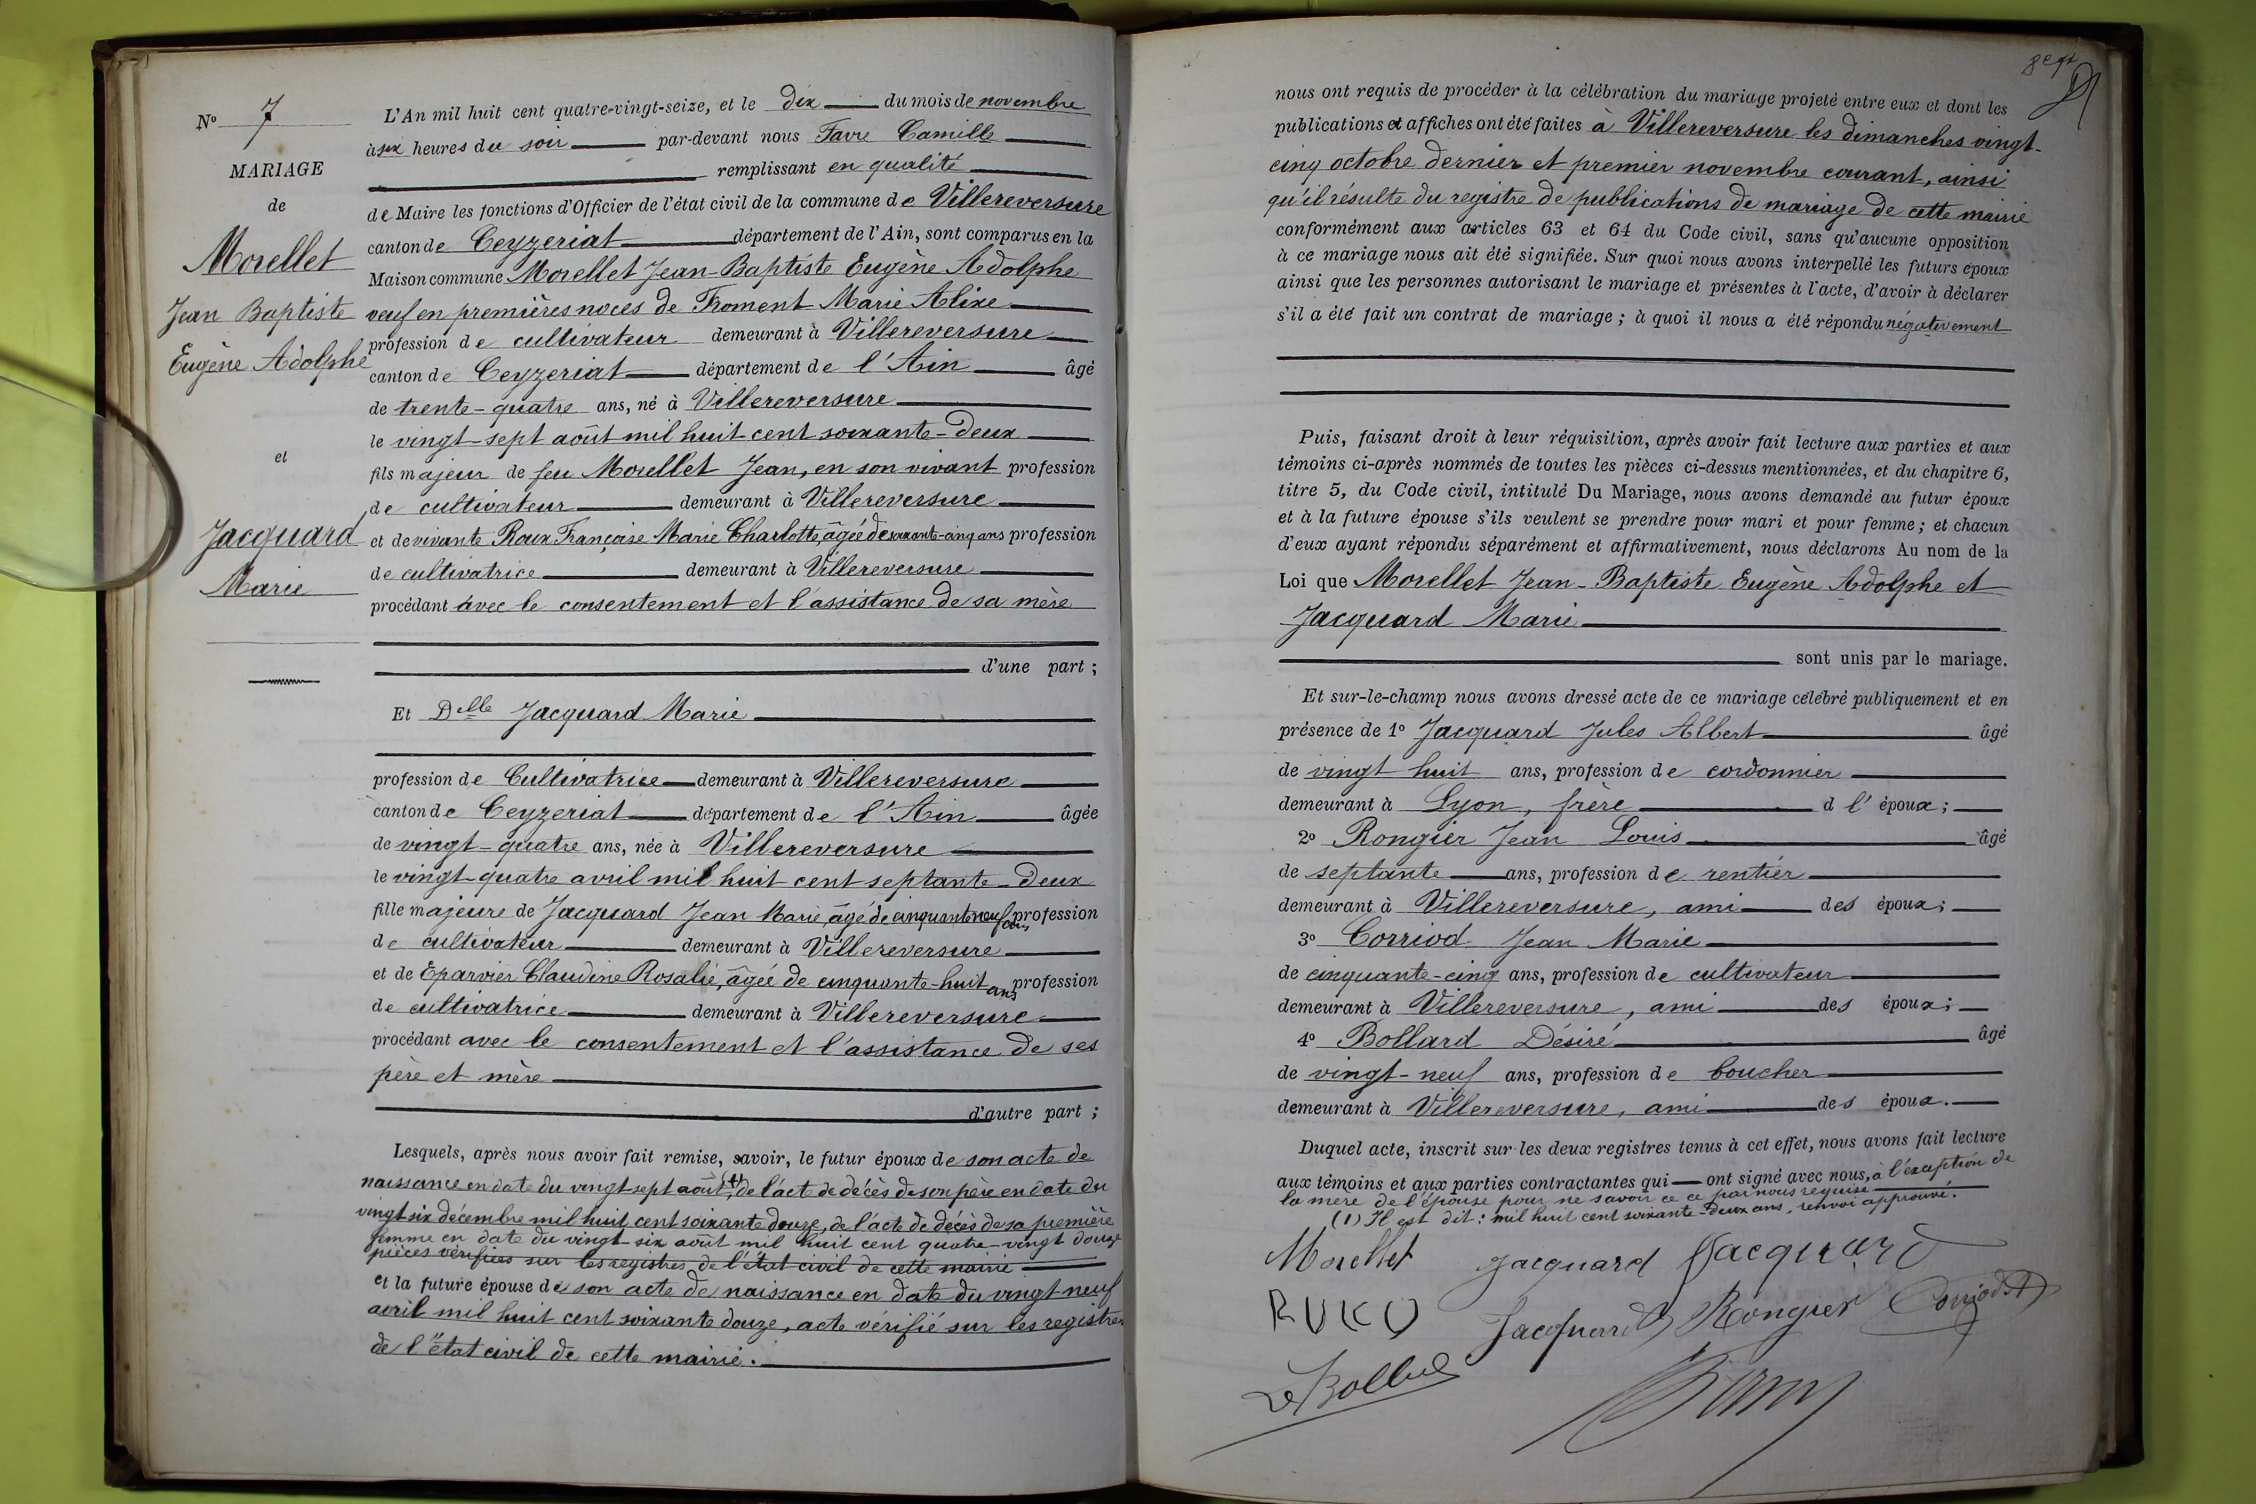 N° 7
MARIAGE
de
Morellet
Jean Baptiste
Eugène Adolphe
et
Jacquard
Marie
L'An mil huit cent quatre-vingt-seize, et le dix du mois de novembre
à six heures du soir par-devant nous Favre Camille
remplissant en qualité
de Maire les fonctions d'Officier de l'état civil de la commune de Villereversure
canton de Ceyzeriat département de l'Ain, sont comparus en la
Maison commune Morellet Jean-Baptiste Eugène Adolphe
veuf en premières noces de Froment Marie Alixe
profession de cultivateur demeurant à Villereversure
canton de Ceyzeriat département de l'Ain âgé
de trente-quatre ans, né à Villereversure
le vingt-sept août mil huit cent soixante-deux
fils majeur de feu Morellet Jean, en son vivant profession
de cultivateur demeurant à Villereversure
et de vivante Roux Françoise Marie Charlotte, âgée de soixante-cinq ans profession
de cultivatrice demeurant à Villereversure
procédant avec le consentement et l'assistance de sa mère
d'une part ;
Et Delle Jacquard Marie
profession de Cultivatrice demeurant à Villereversure
canton de Ceyzeriat département de l'Ain âgée
de vingt-quatre ans, née à Villereversure
le vingt-quatre avril mil huit cent septante-deux
fille majeure de Jacquard Jean Marie, âgé de cinquante neuf ans, profession
de cultivateur demeurant à Villereversure
et de Eparvier Claudine Rosalie, âgée de cinquante-huit ans profession
de cultivatrice demeurant à Villereversure
procédant avec le consentement et l'assistance de ses
père et mère
d'autre part ;
Lesquels, après nous avoir fait remise, savoir, le futur époux de son acte de
naissance en date du vingt sept août (1), de l'acte de décès de son père en date du
vingt six décembre mil huit cent soixante douze, de l'acte de décès de sa première
femme en date du vingt-six août mil huit cent quatre-vingt douze
pièces vérifiées sur les registres de l'état civil de cette mairie
et la future épouse de son acte de naissance en date du vingt neuf
avril mil huit cent soixante douze, acte vérifié sur les registres
de l'état civil de cette mairie.
nous ont requis de procéder à la célébration du mariage projeté entre eux et dont les
publications et affiches ont été faites à Villereversure les dimanches vingt-
cinq octobre dernier et premier novembre courant, ainsi
qu'il résulte du registre de publications de mariage de cette mairie
conformément aux articles 63 et 64 du Code civil, sans qu'aucune opposition
à ce mariage nous ait été signifiée. Sur quoi nous avons interpellé les futurs époux
ainsi que les personnes autorisant le mariage et présentes à l'acte, d'avoir à déclarer
s'il a été fait un contrat de mariage ; à quoi il nous a été répondu négativement
Puis, faisant droit à leur réquisition, après avoir fait lecture aux parties et aux
témoins ci-après nommés de toutes les pièces ci-dessus mentionnées, et du chapitre 6,
titre 5, du Code civil, intitulé Du Mariage, nous avons demandé au futur époux
et à la future épouse s'ils veulent se prendre pour mari et pour femme ; et chacun
d'eux ayant répondu séparément et affirmativement, nous déclarons Au nom de la
Loi que Morellet Jean-Baptiste Eugène Adolphe et
Jacquard Marie
sont unis par le mariage.
Et sur-le-champ nous avons dressé acte de ce mariage célébré publiquement et en
présence de 1° Jacquard Jules Albert âgé
de vingt huit ans, profession de cordonnier
demeurant à Lyon, frère d l' époux ;
2° Rongier Jean Louis âgé
de septante ans, profession de rentier
demeurant à Villereversure, ami des époux ;
3° Corriod Jean Marie
de cinquante-cinq ans, profession de cultivateur
demeurant à Villereversure, ami des époux ;
4° Bollard Désiré âgé
de vingt-neuf ans, profession de boucher
demeurant à Villereversure, ami des époux.
Duquel acte, inscrit sur les deux registres tenus à cet effet, nous avons fait lecture
aux témoins et aux parties contractantes qui ont signé avec nous, à l'exception de
la mère de l'épouse pour ne savoir ce ce par nous requise
(1) Il est dit : mil huit cent soixante-deux ans, renvoi approuvé.
Morellet Jacquard Jacquard
Jacquard Rongier Corriod